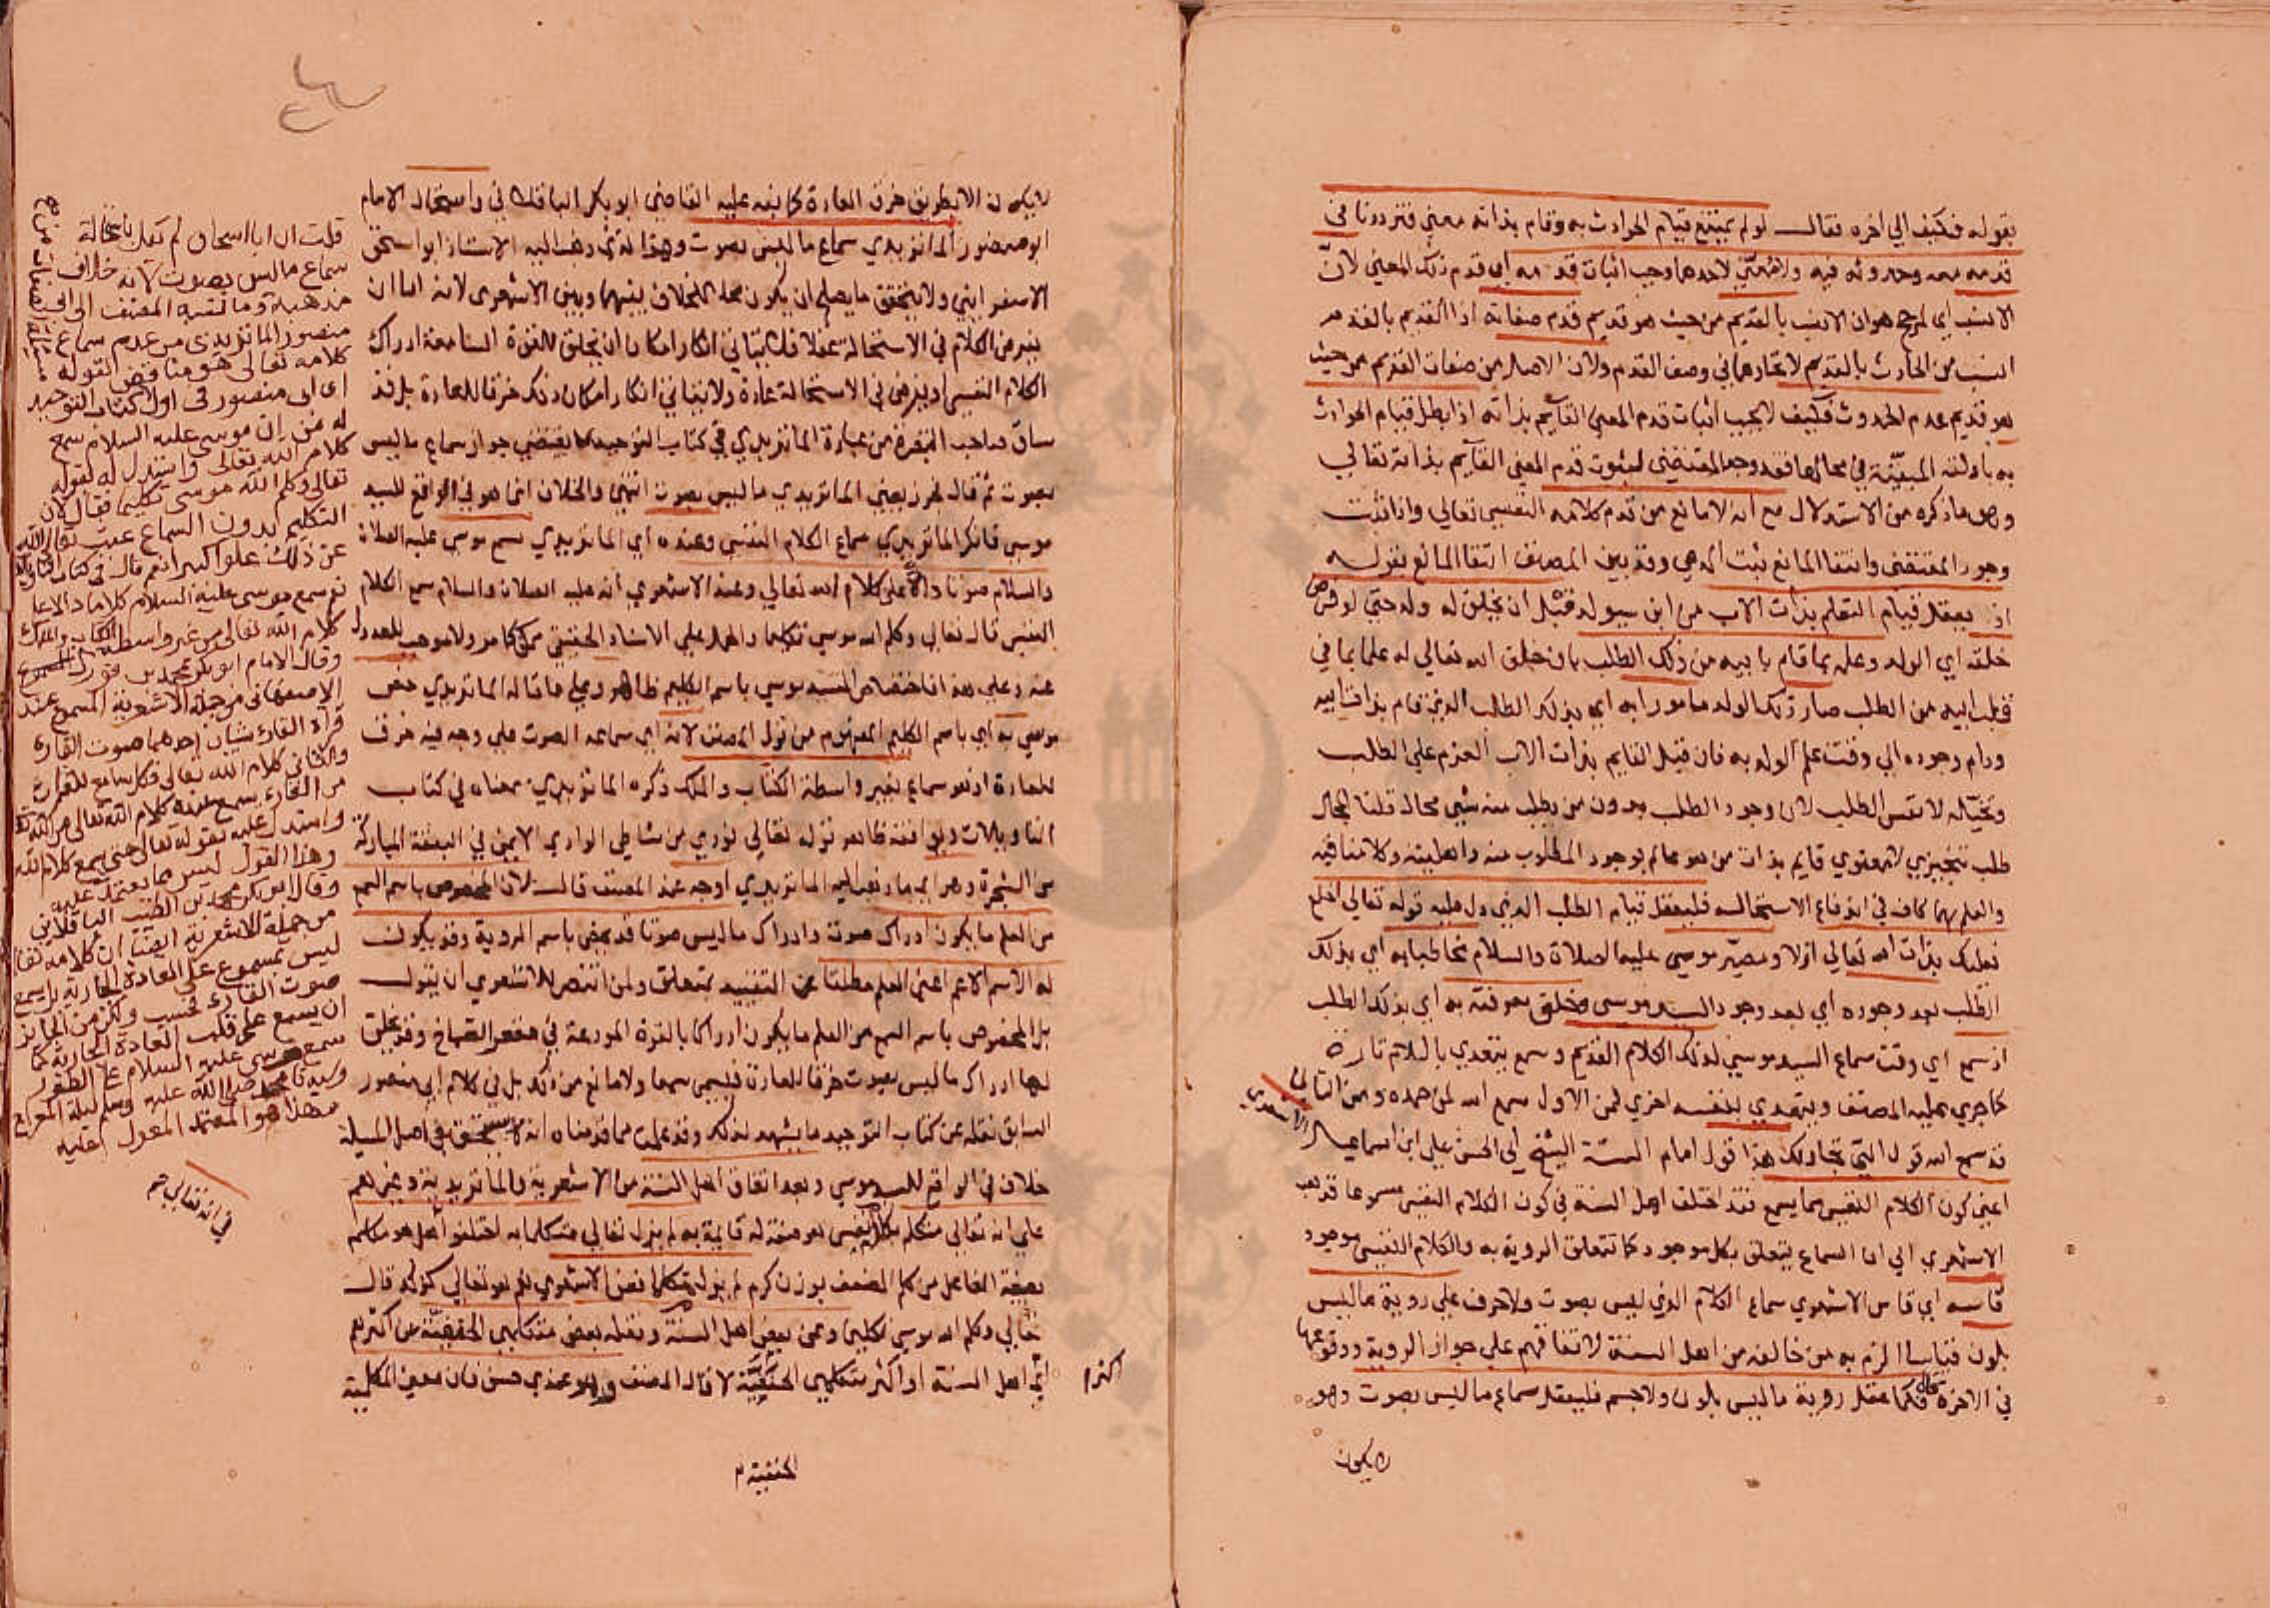 بقوله فكيف الي اخره فقال لو لم يمتنع قيام الحوادث به وقام بذاته معني فترددنا في
قدمه معه وحدوثه فيه ولا معين لاحدهما وجب اثبات قدمه اي قدم ذلك المعني لان
الانسب اي المرجح هو ان الانسب بالقديم من حيث هو قديم قدم صفاته اذ القديم بالقديم
انسب من الحادث بالقديم لاتحادهما في وصف القدم ولان الاصل من صفات القديم من حيث
هو قديم عدم الحدوث فكيف لا يجب اثبات قدم المعني القايم بذاته اذا بطل قيام الحوادث
به بادلته المبينة في محالها فقد وجد المقتضي لثبوت قدم المعني القايم بذاته تعالي
وهو ما ذكره من الاستدلال مع انه لا مانع من قدم كلامه النفسي تعالي واذا ثبت
وجود المقتضي وانتفا المانع ثبت المدعي وقد بين المصنف انتفا المانع بقوله
اذ يعقل قيام التعلم بذات الاب من ابن سيولد قبل ان يخلق له ولد حتي لو فرض
خلقه اي الولد وعلمه بما قام بابيه من ذلك الطلب بان خلق الله تعالي له علما بما في
قلب ابيه من الطلب صار ذلك الولد مامورا به اي بذلك الطلب الذي قام بذات ابيه
ودام وجوده الي وقت علم الولد به فان قيل القايم بذات الاب العزم علي الطلب
وتخيله لا نفس الطلب لان وجود الطلب بدون من يطلب منه شي محال قلنا المحال
طلب تنجيزي لا معنوي قايم بذات من هو عالم بوجود المطلوب منه واهليته وكلامنا فيه
والعلم بهما كاف في اندفاع الاستحالة فليعقل قيام الطلب الذي دل عليه قوله تعالي اخلع
نعليك بذات الله تعالي ازلا ومصير موسي عليه الصلاة والسلام مخاطبا به اي بذلك
الطلب بعد وجوده اي بعد وجود السيد موسي وخلق معرفته به اي بذلك الطلب
اذ سمع اي وقت سماع السيد موسي لذلك الكلام القديم وسمع يتعدي باللام تارة
كما جري عليه المصنف ويتعدي بنفسه اخري فمن الاول سمع الله لمن حمده ومن الثاني
قد سمع الله قول التي تجادلك هذا قول امام السنة الشيخ ابي الحسن علي ابن اسماعيل الاشعري
اعني كون الكلام النفسي مما يسمع فقد اختلف اهل السنة في كون الكلام النفسي مسموعا فذهب
الاشعري الي ان السماع يتعلق بكل موجود كما تتعلق الروية به والكلام النفسي موجود
قاسه اي قاس الاشعري سماع الكلام الذي ليس بصوت ولا حرف علي روية ما ليس
بلون قياسا الزم به من خالفه من اهل السنة لاتفاقهم علي جواز الروية ووقوعها
في الاخرة فكما عقل روية ما ليس بلون ولا جسم فليعقل سماع ما ليس بصوت وهو
لا يكون
لا يكون الا بطريق خرق العادة كما نبه عليه القاضي ابو بكر الباقلاني واستحال الامام
ابو منصور الماتريدي سماع ما ليس بصوت وهذا الذي ذهب اليه الاستاذ ابو اسحق
الاسفرايني ولا يتحقق ما يصلح ان يكون محل الخلاف بينهما وبين الاشعري لانه اما ان
يفرض الكلام في الاستحالة عقلا فلا يتاتي انكار امكان ان يخلق للقوة السامعة ادراك
الكلام النفسي او يفرض في الاستحالة عادة ولا يتاتي انكار امكان ذلك خرقا للعادة بل قد
ساق صاحب التبصرة من عبارة الماتريدي في كتاب التوحيد ما يقتضي جواز سماع ما ليس
بصوت ثم قال فجوز يعني الماتريدي ما ليس بصوت انتهي والخلاف انما هو في الواقع للسيد
موسي فانكر الماتريدي سماع الكلام النفسي وعنده اي الماتريدي سمع موسي عليه الصلاة
والسلام صوتا دالا علي كلام الله تعالي وعند الاشعري انه عليه الصلاة والسلام سمع الكلام
النفسي قال تعالي وكلم الله موسي تكليما والحمل علي الاسناد الحقيقي ممكن كما مر ولا موجب للعدول
عنه وعلي هذا فاختصاص السيد موسي باسم الكليم ظاهر وعلي ما قاله الماتريدي خص
موسي به اي باسم الكليم المفهوم من قول المصنف لانه اي سماعه الصوت علي وجه فيه خرق
للعادة اذ هو سماع بغير واسطة الكتاب والملك ذكره الماتريدي بمعناه في كتاب
التاويلات ويوافقه ظاهر قوله تعالي نودي من شاطي الوادي الايمن في البقعة المباركة
من الشجرة وهو اي ما ذهب اليه الماتريدي اوجه عند المصنف قال لان المخصوص باسم السمع
من العلم ما يكون ادراك صوت وادراك ما ليس صوتا قد يخص باسم الروية وقد يكون
له الاسم الاعم اعني العلم مطلقا عن التقييد بمتعلق ولمن انتصر للاشعري ان يقول
بل المخصوص باسم السمع من العلم ما يكون ادراكا بالقوة المودعة في مقعر الصماخ وقد يخلق
لها ادراك ما ليس بصوت خرقا للعادة فيسمي سمعا ولا مانع من ذلك بل في كلام ابي منصور
السابق نقله عن كتاب التوحيد ما يشهد لذلك وقد علمت مما قدمناه انه لا يتحقق في اصل المسيلة
خلاف في الواقع للسيد موسي وبعد اتفاق اهل السنة من الاشعرية والماتريدية وغيرهم
علي انه تعالي متكلم بكلام نفسي هو صفة له قايمة به لم يزل تعالي متكلما به اختلفوا هل هو مكلم
بصيغة الفاعل من كلم المضعف بوزن كرم لم يزل مكلما فعن الاشعري نعم هو تعالي كذلك قال
تعالي وكلم الله موسي تكليما وعن بعض اهل السنة ونقله بعض متكلمي الحنفية عن اكثرهم
اي اهل السنة او اكثر متكلمي الحنفية لا قال المصنف وهو عندي حسن فان معني المكلمية
اكثرهم
الحنفية م
قلت ان ابا اسحاق لم يقل باستحالة
سماع ما ليس بصوت لانه خلاف
مذهبه وما نسبه المصنف الي ابي
منصور الماتريدي من عدم سماع
كلامه تعالى هو مناقض لقوله
اي ابي منصور في اول كتاب التوحيد
له من ان موسى عليه السلام سمع
كلام الله تعالى واستدل له بقوله
تعالى وكلم الله موسى تكليما فقال لان
التكليم بدون السماع عبث تعالى الله
عن ذلك علوا كبيرا ثم قال في كتاب التاويلات
نعم سمع موسى عليه السلام كلاما دالا علي
كلام الله تعالى من غير واسطة الكتاب والملك
وقال الامام ابو بكر محمد بن فورك
الاصفهاني من جملة الاشعرية المسموع عند
قراة القارئ شيئان احدهما صوت القارئ
والثاني كلام الله تعالى فكل سامع للقران
من القارئ سمع كلام الله تعالى من الله
واستدل عليه بقوله تعالى حتى يسمع كلام الله
وهذا القول ليس مما يعتمد عليه
وقال ابو بكر محمد بن الطيب الباقلاني
من جملة الاشعرية ايضا ان كلامه تعالى
ليس بمسموع على العادة الجارية بل يسمع
صوت القارئ فحسب ولكن من الجائز
ان يسمع على قلب العادة الجارية كما
سمع موسى عليه السلام على الطور
وسيدنا محمد صلى الله عليه وسلم ليلة المعراج
وهذا هو المعتمد المعول عليه
في انه تعالي